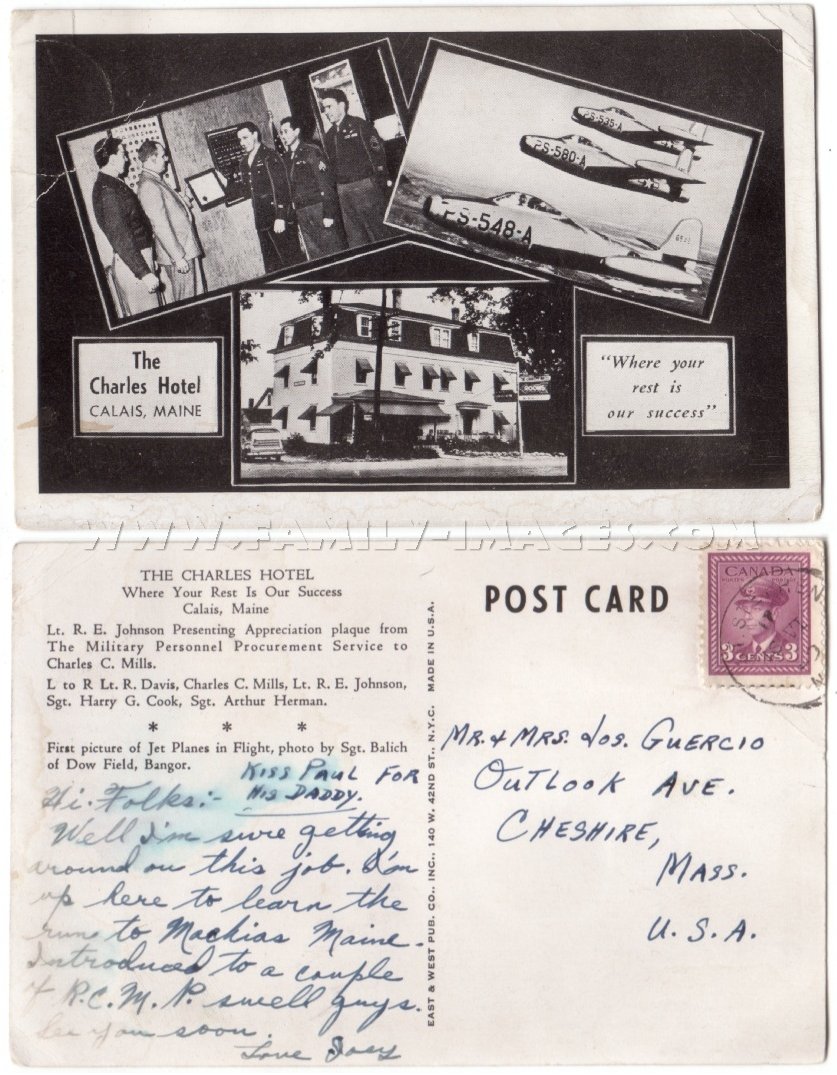 PS-535-A
PS-580-A
PS-548-A
The
Charles Hotel
CALAIS, MAINE
ROOMS
"Where your
rest is
our success"
WWW.FAMILY-IMAGES.COM
THE CHARLES HOTEL
Where Your Rest Is Our Success
Calais, Maine
Lt. R. E. Johnson Presenting Appreciation plaque from
The Military Personnel Procurement Service to
Charles C. Mills.
L to R Lt. R. Davis, Charles C. Mills, Lt. R. E. Johnson,
Sgt. Harry G. Cook, Sgt. Arthur Herman.
* * *
First picture of Jet Planes in Flight, photo by Sgt. Balich
of Dow Field, Bangor.
KISS PAUL FOR
HIS DADDY.
Hi. Folks:-
Well I'm sure getting
around on this job. I'm
up here to learn the
runs to Machias Maine.
Introduced to a couple
of R.C.M.P. swell guys.
See you soon.
Love Joey
EAST & WEST PUB. CO., INC., 140 W. 42ND ST., N.Y.C. MADE IN U.S.A.
POST CARD
CANADA
POSTES POSTAGE
3 CENTS 3
MR. & MRS. JOS. GUERCIO
OUTLOOK AVE.
CHESHIRE,
MASS.
U. S. A.